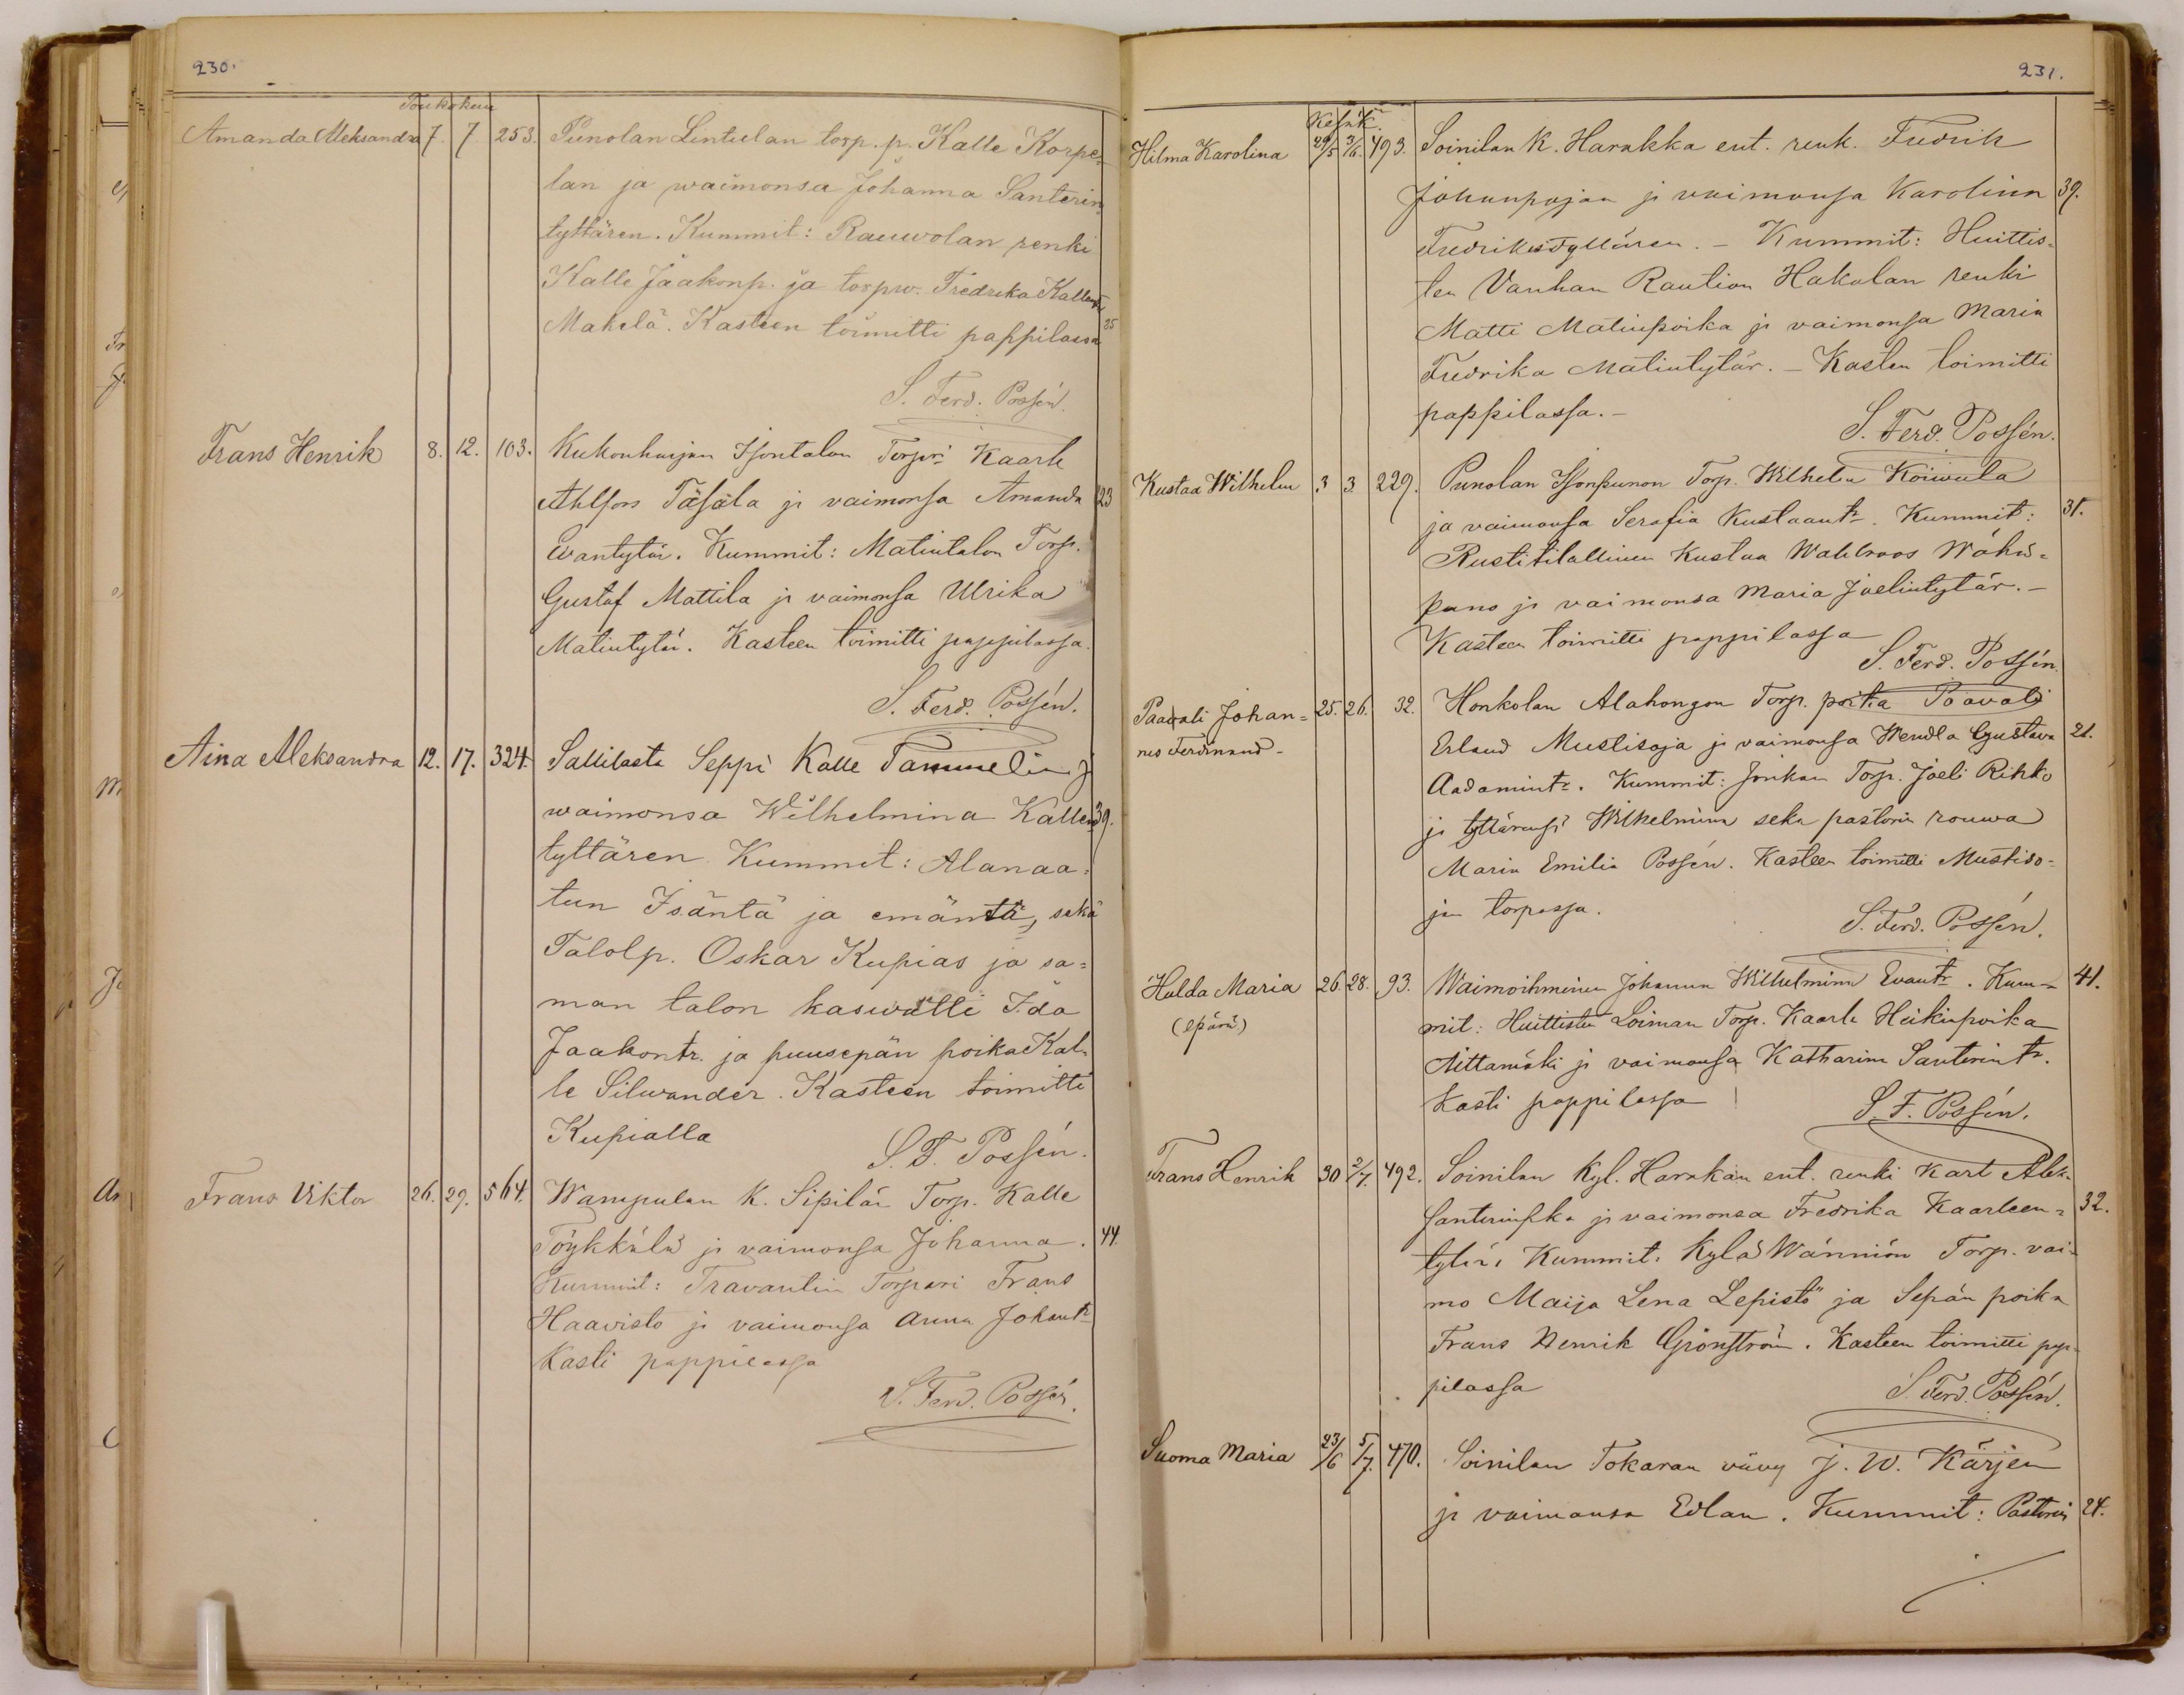 230.
Toukokuu
Amanda Aleksandra 7. 7. 253. Punolan Lintulan torp. p. Kalle Korpe-
lan ja waimonsa Johanna Santerin
tyttären. Kummit: Rauwolan renki
Kalle Jaakonp. ja torpw. Fredrika Kallentr
Makelä. Kasteen toimitti pappilassa 25
S. Ferd. Possén.
Frans Henrik 8. 12. 103. Kukonharjan Isontalon Torpri Kaarle
Ahlfors Täsälä ja vaimonsa Amanda 23
Evantytär. Kummit: Matintalon Torp.
Gustaf Mattila ja vaimonsa Ulrika
Matintytär. Kasteen toimitti pappilassa.
S. Ferd. Possén.
Aina Aleksandra 12. 17. 324. Sallilasta Seppä Kalle Tammelin j
waimonsa Wilhelmina Kallen 39.
tyttären Kummit: Alanaa-
tun Isäntä ja emäntä, sekä
Talolp. Oskar Kupias ja sa-
man talon kaswatti Ida
Jaakontr. ja puusepän poika Kal-
le Silwander. Kasteen toimitti
Kupialla
S. F. Possén.
Frans Viktor 26. 29. 564. Wampulan K. Sipilän Torp. Kalle
Töykkälä ja vaimonsa Johanna. 44.
Kummit: Travantin Torpari Frans
Haavisto ja vaimonsa Anna Johantr
Kasti pappilassa
S. Ferd. Possén.
231.
Kesäk.
Hilma Karolina 29/5 3/6. 493. Soinilan K. Harakka ent. renk. Fredrik
Johanpojan ja vaimonsa Karolina 39.
Fredrikintyttären. - Kummit: Huittis-
ten Vanhan Raution Hakolan renki
Matti Matinpoika ja vaimonsa Maria
Fredrika Matintytär. - Kasten toimitti
pappilassa. -
S. Ferd. Possén.
Kustaa Wilhelm 3 3. 229. Punolan Isonpunon Torp. Wilhelm Koiwula
ja vaimonsa Serafia Kustaantr. Kummit: 31.
Rustitilallinen Kustaa Wahlroos Wähä-
puno ja vaimonsa Maria Joelintytär. -
Kasteen toimitti pappilassa
S. Ferd. Possén.
Paavali Johan- 25. 26. 32. Honkolan Alahongon Torp. poika Paavali
nes Ferdinand - Erland Mustisoja ja vaimonsa Wendla Gustava 21.
Aadamintr. Kummit: Torp. Joeli Rihko
ja tyttärensä Wilhelmina seka pastorin rouwa
Maria Emilia Possén. Kasteen toimitti Mustiso-
jan torpassa.
S. Ferd. Possén.
Hulda Maria 26. 28. 93. Waimoihminen Johanna Wilhelmina Evantr. Kum- 41.
(äpärä) mit: Huittisten Loiman Torp. Kaarle Heikinpoika
Aittamäki ja vaimonsa Katharina Santerintr.
Kasti pappilassa
S. F. Possén.
Frans Henrik 30 2/7. 492. Soinilan Kyl. Harakan ent. renki Karl Alek-
santerinpka ja vaimonsa Fredrika Kaarleen- 32.
tytär. Kummit. Kylä Wänniön Torp. vai-
mo Maija Lena Lepistö ja Sepän poika
Frans Henrik Grönström. Kasteen toimitti pap-
pilassa
S. Ferd. Possén.
Suoma Maria 23/6 5/7. 470. Soinilan Tokaran vävy J. W. Kärjen
ja vaimonsa Edlan. Kummit: Pastorin 24.